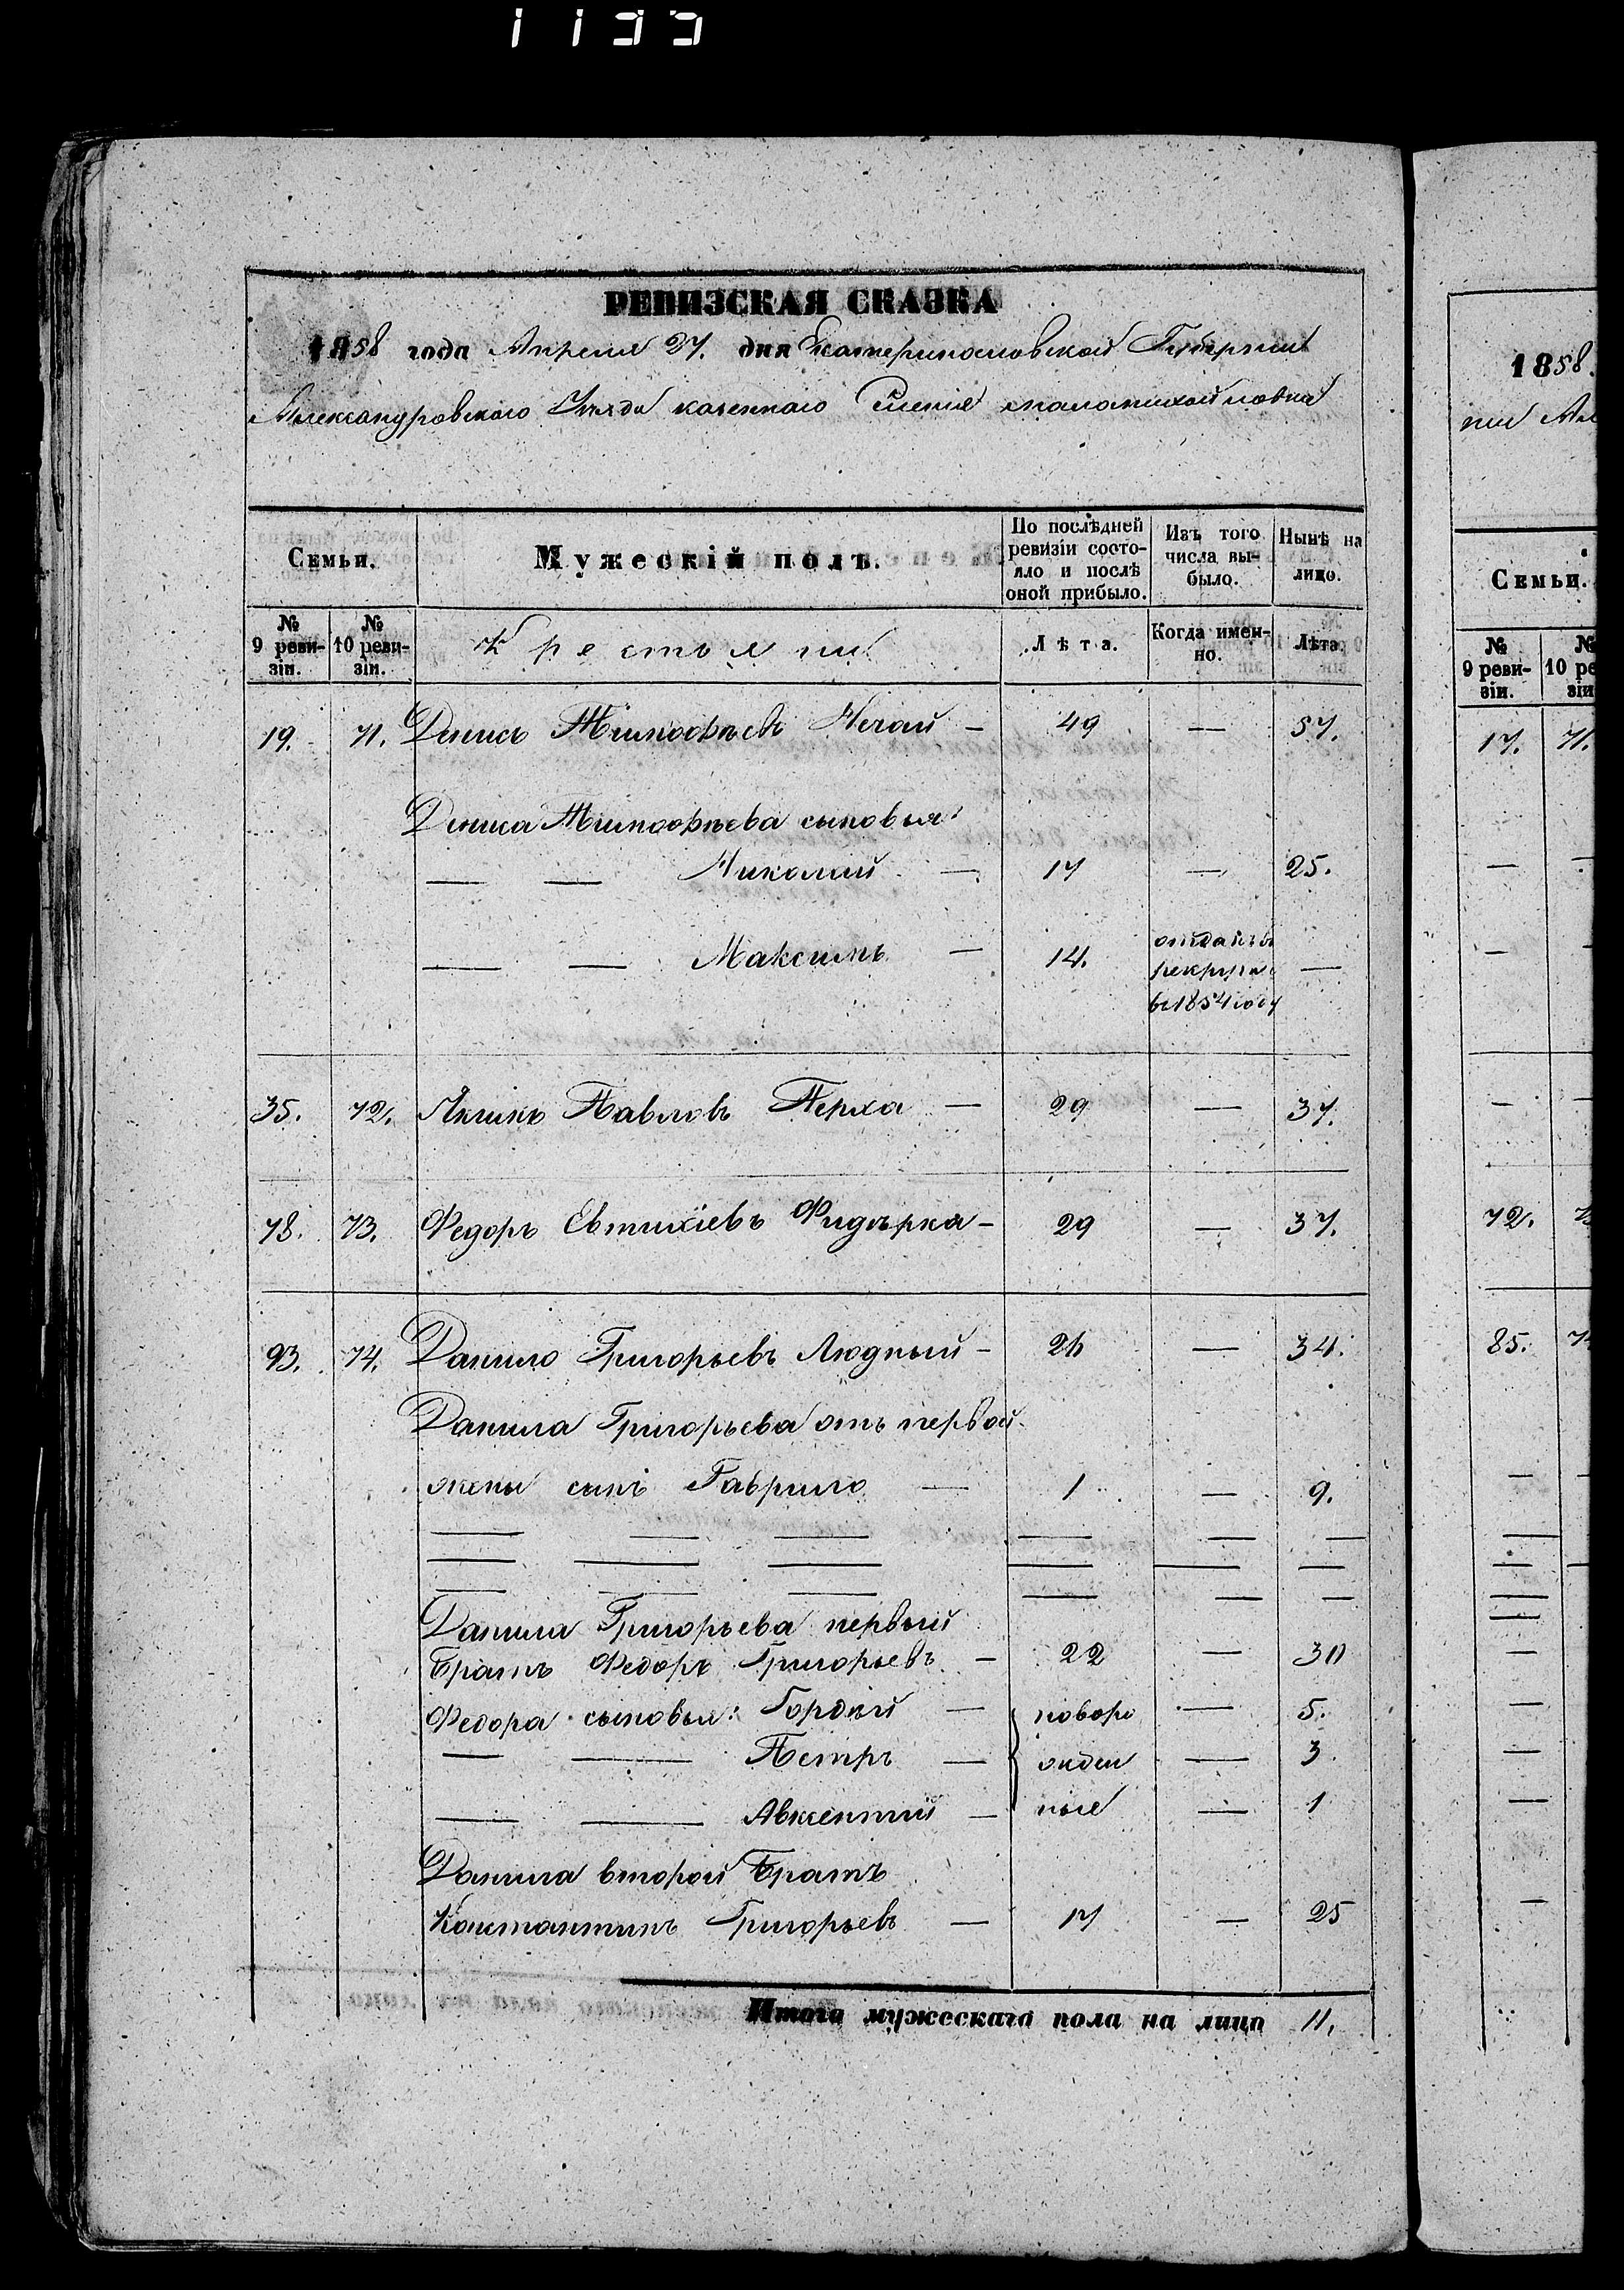 1133
РЕВИЗСКАЯ СКАЗКА
1858 года Апреля 27. дня Екатеринославской Губерніи
Александровскаго Уѣзда казеннаго Селенія
Семьи.
Мужескій полъ.
По послѣдней ревизіи состояло и послѣ оной прибыло.
Изъ того числа выбыло.
Нынѣ на лицо.
№ 9 ревизіи.
№ 10 ревизіи.
Крестьяни
Лѣта.
Когда именно.
Лѣта.
19. 71. Денисъ Тимофѣевъ Нечай — 49 — 57.
Дениса Тимофѣева сыновья:
— — Николай — 17 — 25.
— — Максимъ — 14. отданъ въ рекруты въ 1854 году —
35. 72. Якимъ Павловъ Перха — 29 — 37.
78. 73. Федоръ Евтихіевъ Фидѣрка — 29 — 37.
93. 74. Данило Григорьевъ Людный — 26 — 34.
Данила Григорьева отъ первой
жены сынъ Гаврило — 1 — 9.
Данила Григорьева первый
братъ Федоръ Григорьевъ — 22 — 30
Федора сыновья: Гордѣй — новоро — 5.
— — Петръ — жден — 3.
— — Авксентій — ные — 1
Данила второй братъ
Константинъ Григорьевъ — 17 — 25
Итого мужескаго пола на лицо 11.
1858.
Семьи.
№ 9 ревизіи.
17. 71.
72.
85.